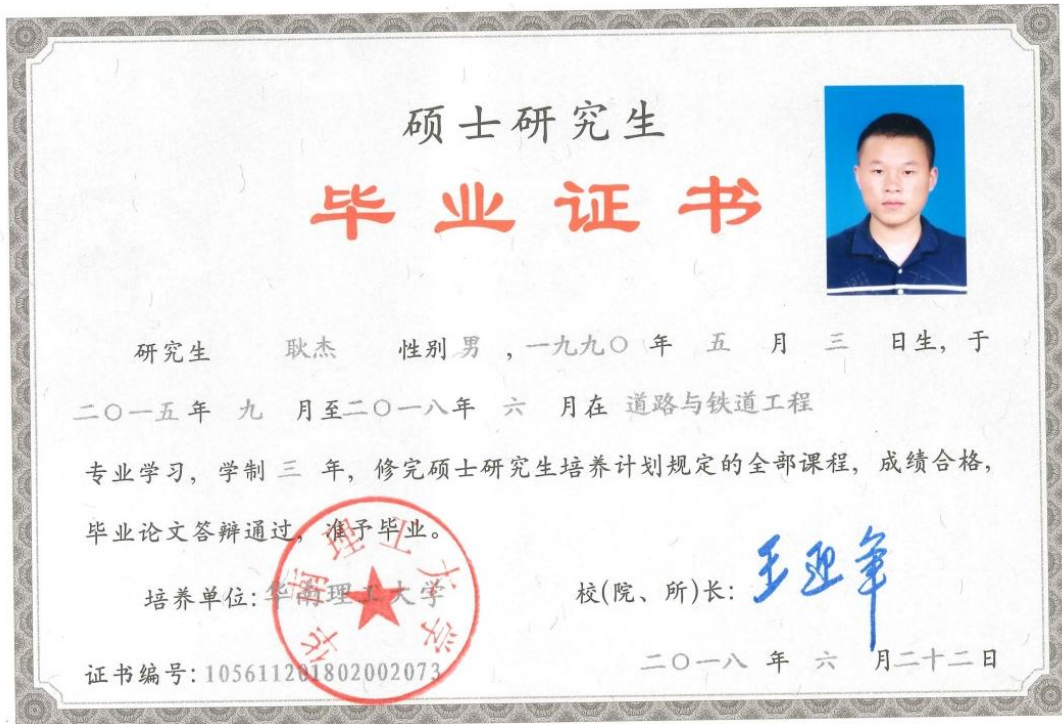 硕士研究生
毕业证书
研究生 耿杰 性别 男 ,一九九〇 年 五 月 三 日生, 于
二〇一五 年 九 月至二〇一八年 六 月在 道路与铁道工程
专业学习, 学制 三 年, 修完硕士研究生培养计划规定的全部课程, 成绩合格,
毕业论文答辩通过, 准予毕业。
华南理工大学
培养单位: 华南理工大学 校(院、所)长: 王迎军
证书编号: 105611201802002073 二〇一八 年 六 月二十二日